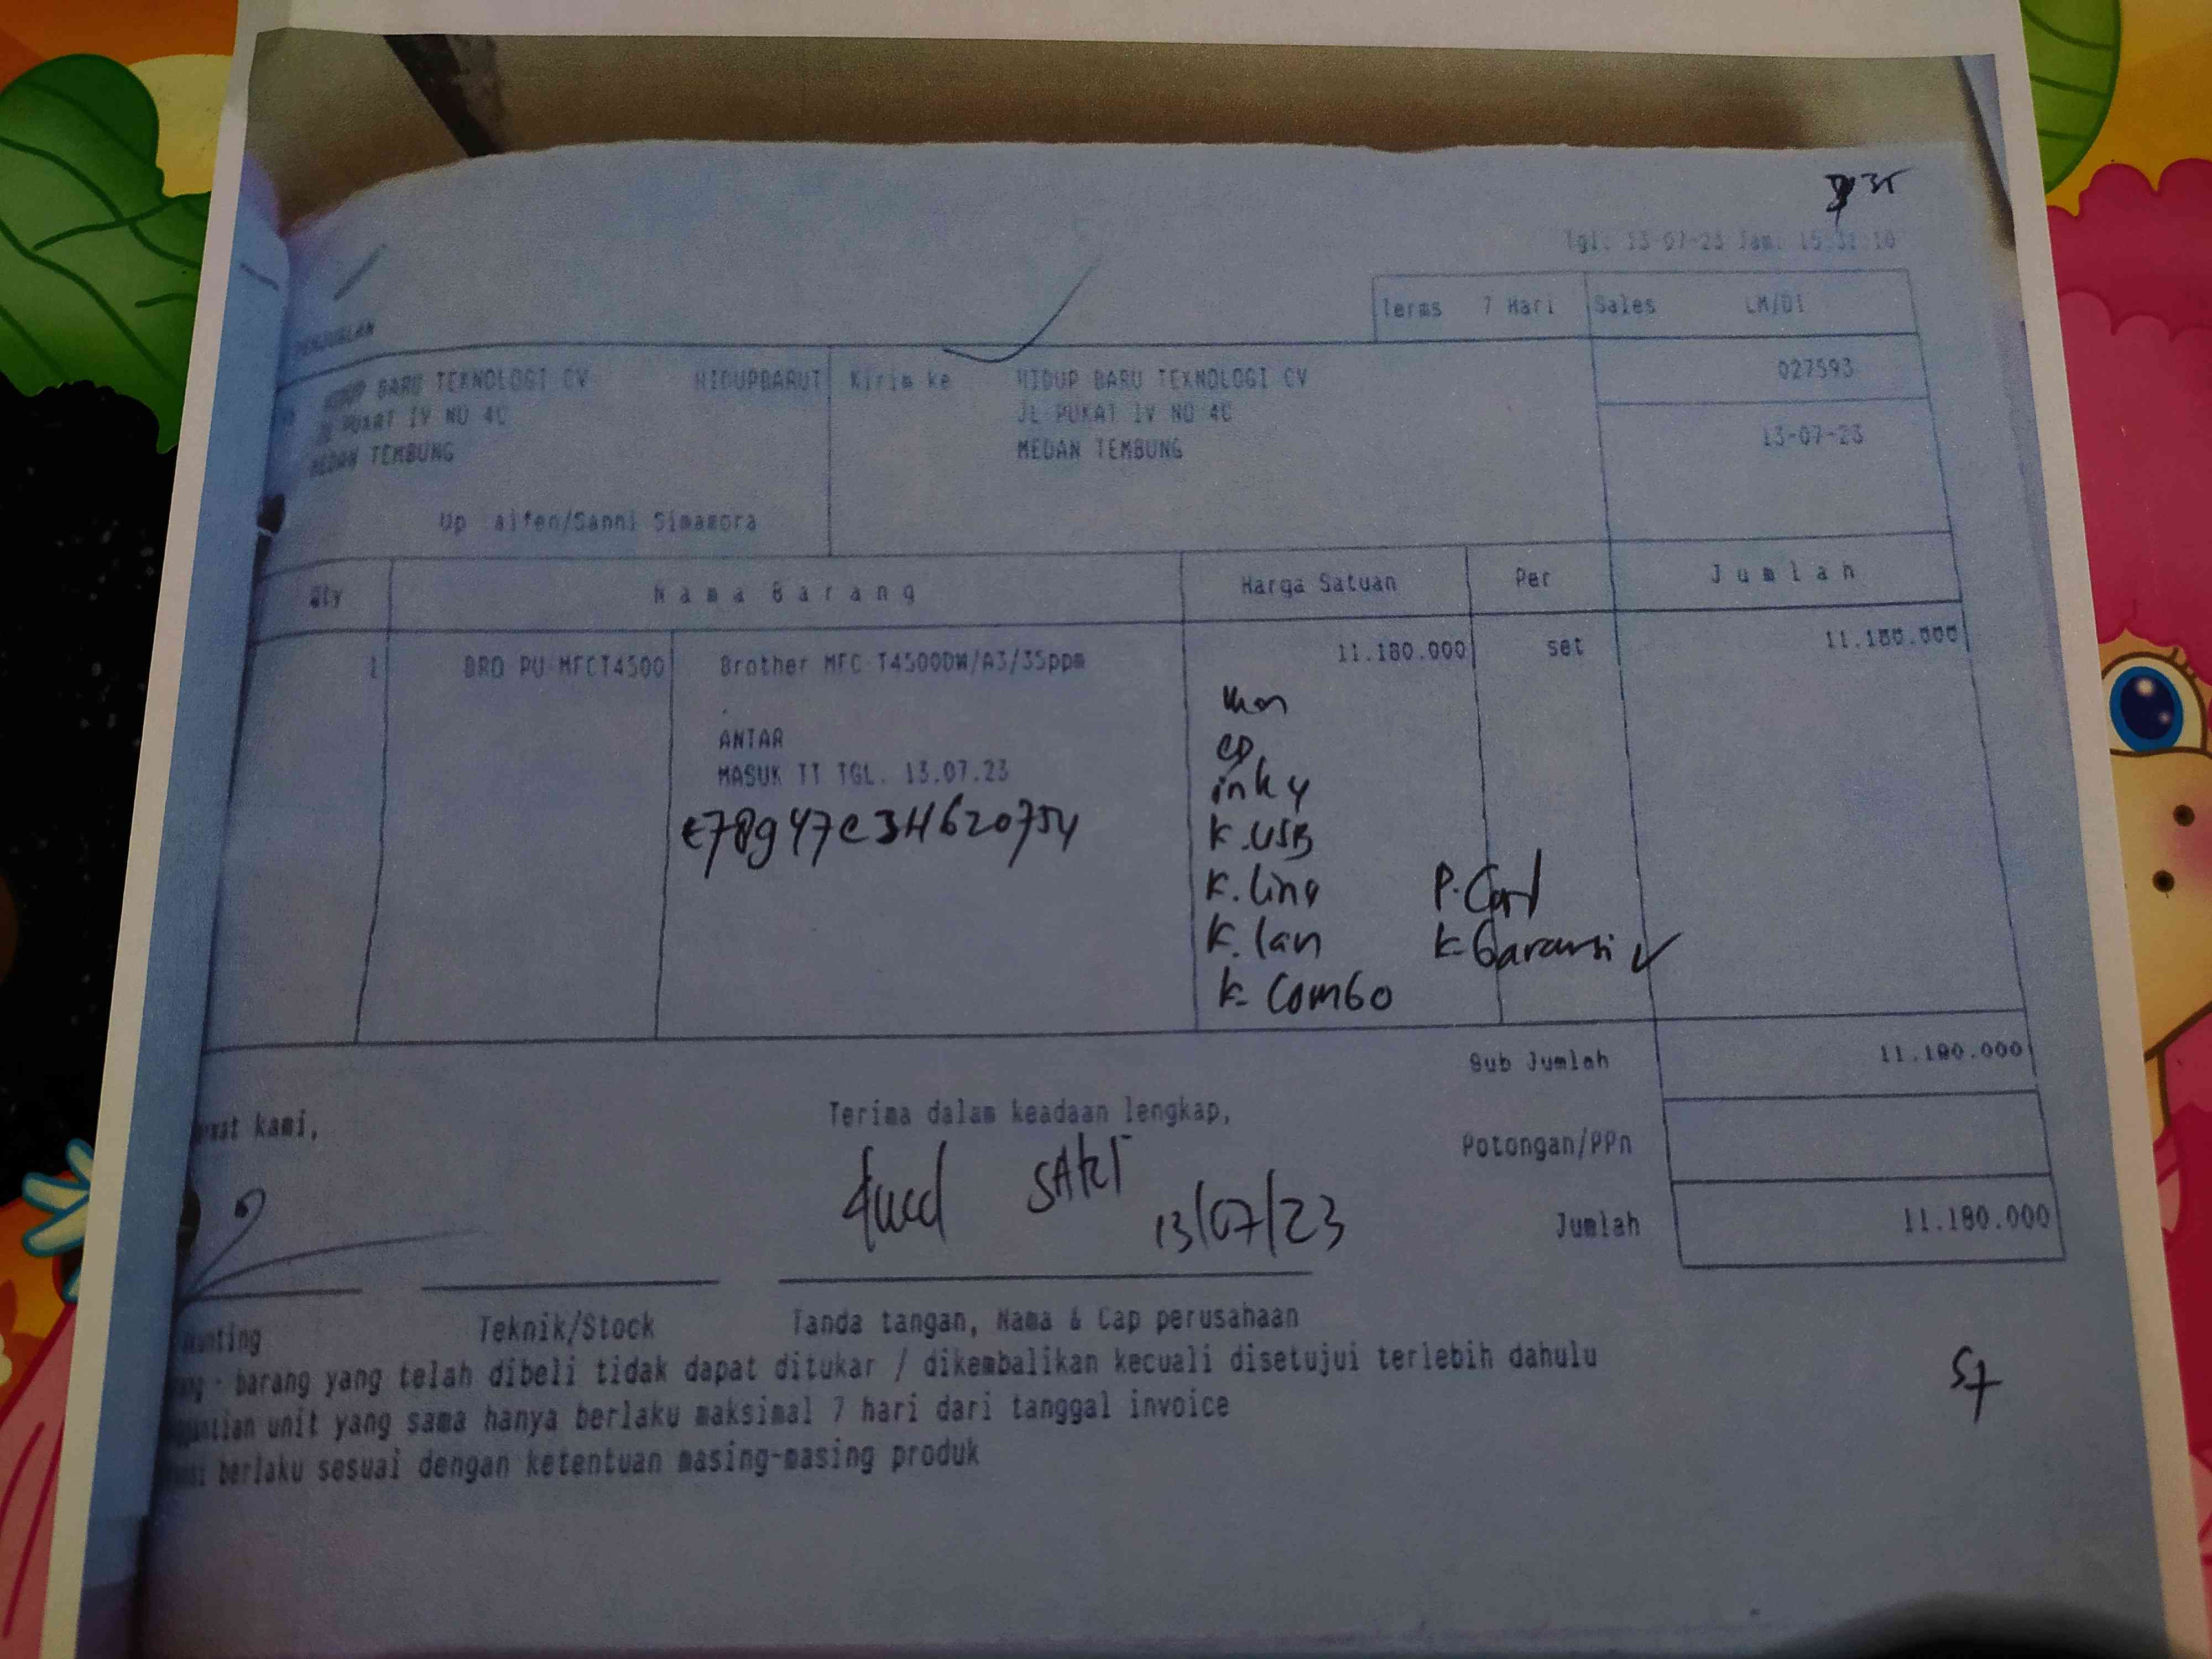 Tgl. 13-07-23 Jam.
Terms 7 Hari Sales LM/DI
PENJUALAN
HIDUP BARU TEKNOLOGI CV HIDUPBARUT Kirim ke HIDUP BARU TEKNOLOGI CV 027593
PUKAT IV NO 4C JL PUKAT IV NO 4C 13-07-23
MEDAN TEMBUNG MEDAN TEMBUNG
Up aifen/Sanni Simamora
Qty Nama Barang Harga Satuan Per Jumlah
1 BRO PU-MFCT4500 Brother MFC T4500DW/A3/35ppm 11.180.000 set 11.180.000
ANTAR
MASUK TT TGL. 13.07.23
E78947C3H620754
CD
ink 4
K.USB
K.line P.Card
K.lan K.Garansi ✓
K.Combo
Sub Jumlah 11.180.000
kami, Terima dalam keadaan lengkap,
Potongan/PPn
SAKTI 13/07/23
Jumlah 11.180.000
Teknik/Stock Tanda tangan, Nama & Cap perusahaan
barang yang telah dibeli tidak dapat ditukar / dikembalikan kecuali disetujui terlebih dahulu
unit yang sama hanya berlaku maksimal 7 hari dari tanggal invoice
berlaku sesuai dengan ketentuan masing-masing produk